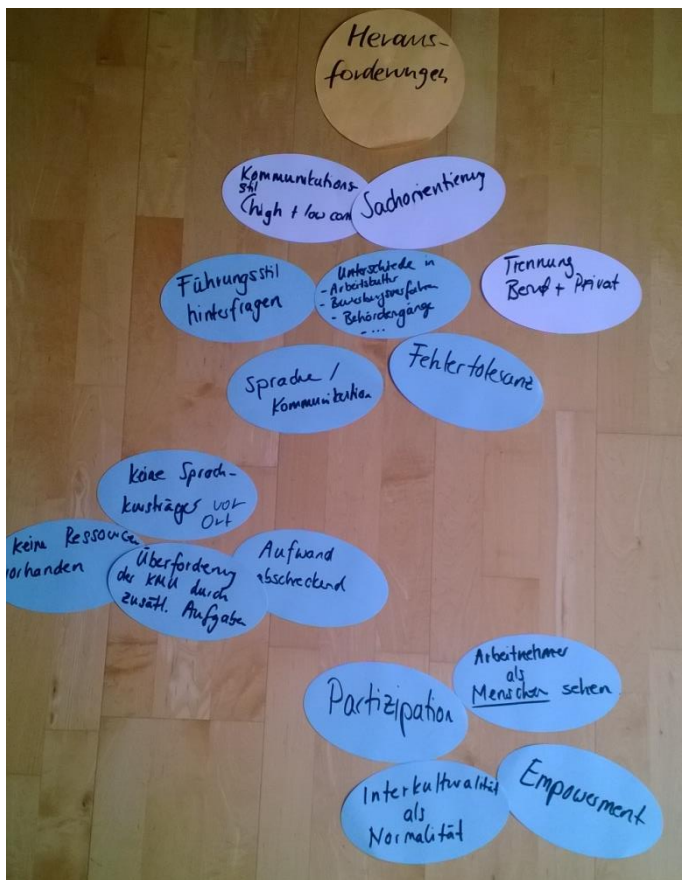 Heraus-
forderungen
Kommunikations-
stil
(high + low con
Sachorientierung
Führungsstil
hinterfragen
Unterschiede in
- Arbeitskultur
- Bewerbungsverfahren
- Behördengänge
- ...
Trennung
Beruf + Privat
Sprache /
Kommunikation
Fehlertoleranz
keine Sprach-
kursträger vor
Ort
keine Ressourcen
vorhanden
Überforderung
der KMU durch
zusätzl. Aufgaben
Aufwand
abschreckend
Partizipation
Arbeitnehmer
als
Menschen sehen
Interkulturalität
als
Normalität
Empowerment